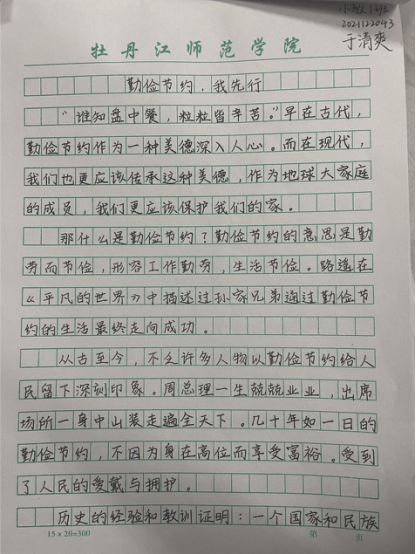 小教1班
2021122043
于清爽
牡丹江师范学院
勤俭节约，我先行
“谁知盘中餐，粒粒皆辛苦。”早在古代，
勤俭节约作为一种美德深入人心。而在现代，
我们也更应该传承这种美德，作为地球大家庭
的成员，我们更应该保护我们的家。
那什么是勤俭节约？勤俭节约的意思是勤
劳而节俭，形容工作勤劳，生活节俭。路遥在
《平凡的世界》中描述过孙家兄弟通过勤俭节
约的生活最终走向成功。
从古至今，不乏许多人物以勤俭节约给人
民留下深刻印象。周总理一生兢兢业业，出席
场所一身中山装走遍全天下。几十年如一日的
勤俭节约，不因为身在高位而享受富裕。受到
了人民的爱戴与拥护。
历史的经验和教训证明：一个国家和民族
15×20=300 第 页